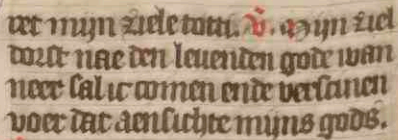 ret mijn ziele totti. V. Mijn ziel
dorst nae den leuenden gode wan
neer sal ic comen ende verscinen
voer dat aensichte mijns gods.